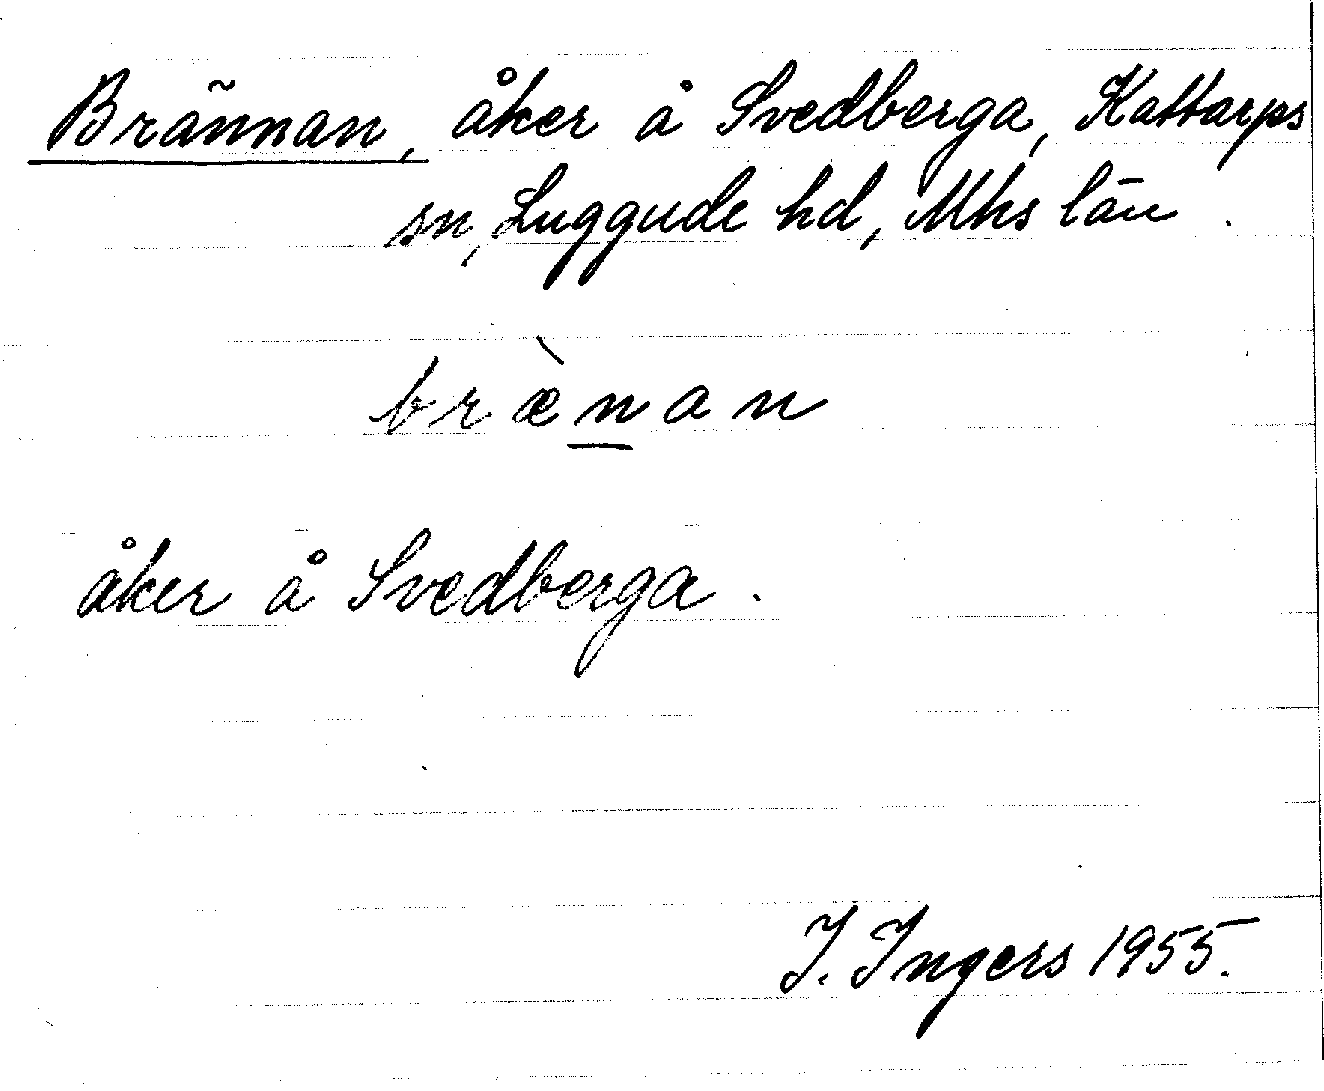 Brännan, åker å Svedberga, Kattarps
sn, Luggude hd, Mhs län.
bræ̀n̲an
åker å Svedberga.
I. Ingers 1955.